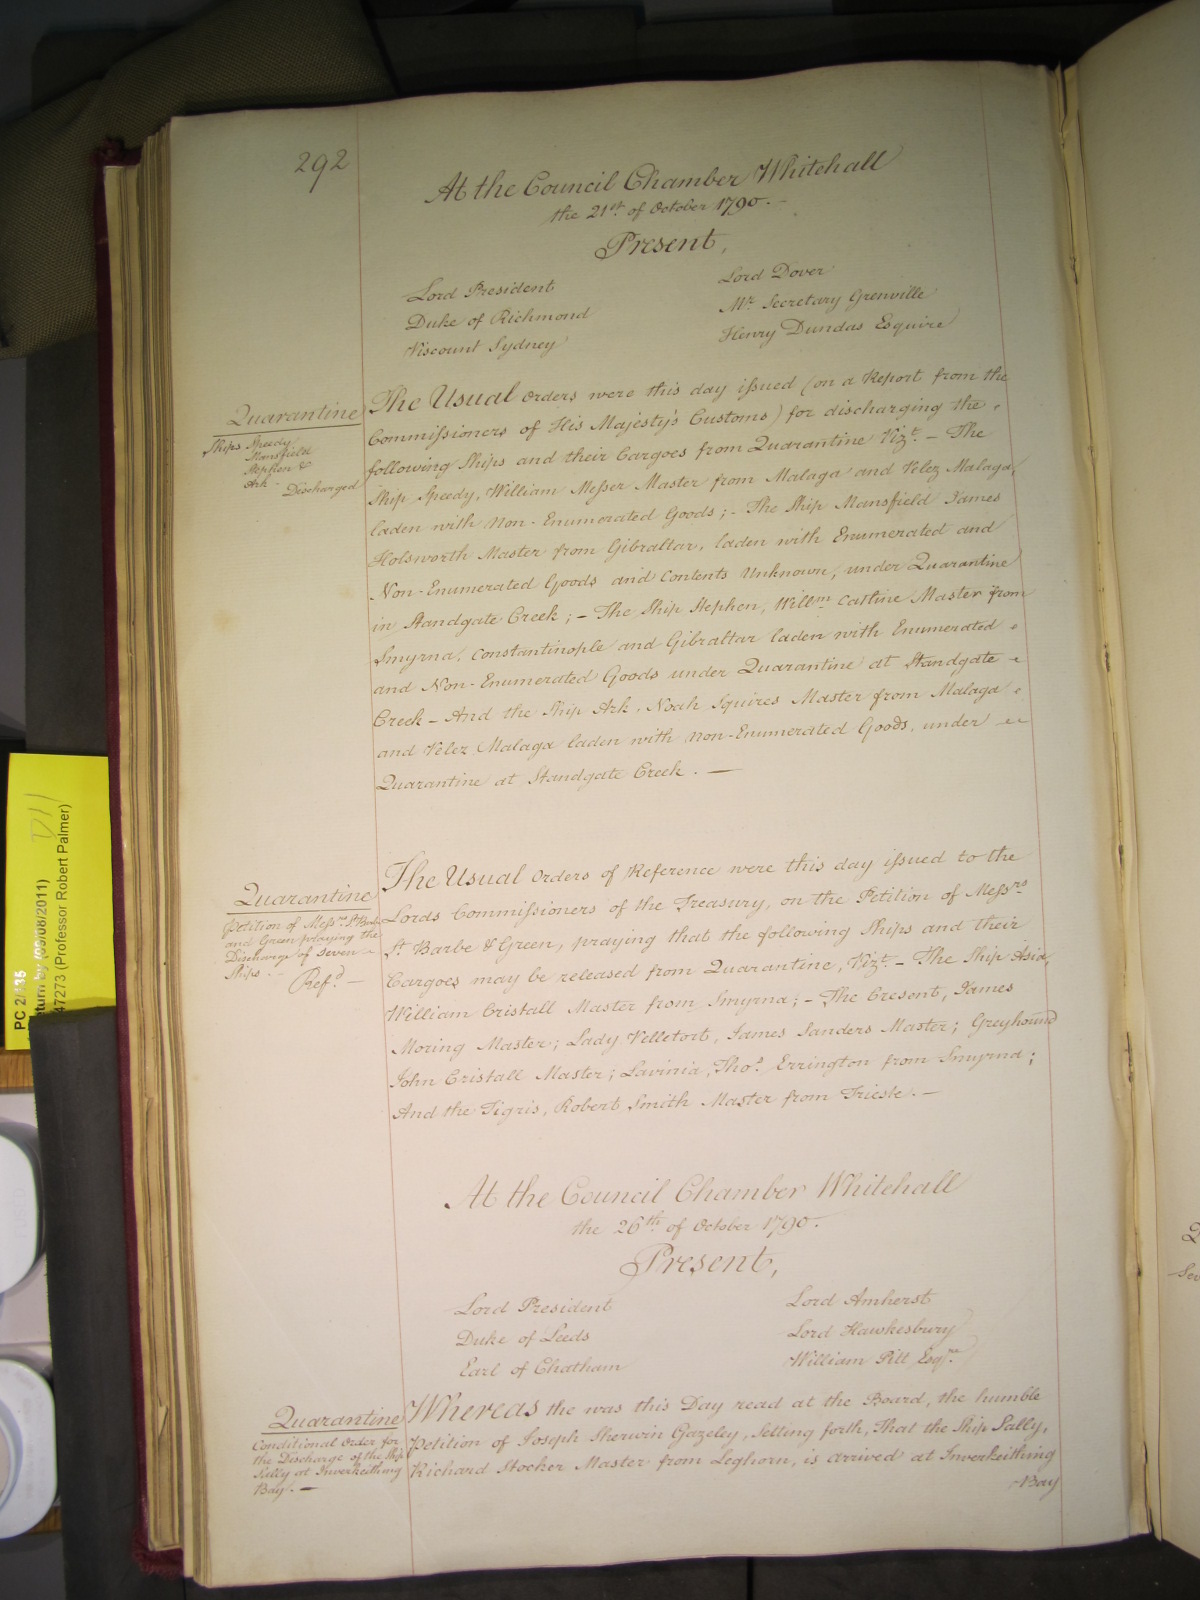 292
At the Council Chamber Whitehall
the 21st. of October 1790. -
Present,
Lord President
Duke of Richmond
Viscount Sydney
Lord Dover
Mr. Secretary Grenville
Henry Dundas Esquire
Quarantine
Ships Speedy
Mansfield
Stephen &
Ark - Discharged
The Usual Orders were this day issued (on a Report from the
Commissioners of His Majesty's Customs) for discharging the
following Ships and their Cargoes from Quarantine Vizt. - The
Ship Speedy, William Messer Master from Malaga and Velez Malaga,
laden with Non-Enumerated Goods; - The Ship Mansfield James
Holsworth Master from Gibraltar, laden with Enumerated and
Non-Enumerated Goods and Contents Unknown, under Quarantine
in Standgate Creek; - The Ship Stephen, Willm. Catline Master from
Smyrna, Constantinople and Gibraltar laden with Enumerated
and Non-Enumerated Goods under Quarantine at Standgate
Creek - And the Ship Ark, Noah Squires Master from Malaga
and Velez Malaga laden with Non-Enumerated Goods, under
Quarantine at Standgate Creek. —
Quarantine
Petition of Messrs. St. Barbe
and Green praying the
Discharge of Seven
Ships. -
Refd. —
The Usual Orders of Reference were this day issued to the
Lords Commissioners of the Treasury, on the Petition of Messrs
St. Barbe & Green, praying that the following Ships and their
Cargoes may be released from Quarantine, Vizt. - The Ship Asia,
William Cristall Master from Smyrna; - The Cresent, James
Moring Master; Lady Velletort, James Sanders Master; Greyhound
John Cristall Master; Lavinia, Thos. Errington from Smyrna;
And the Tigris, Robert Smith Master from Trieste. —
At the Council Chamber Whitehall
the 26th. of October 1790.
Present,
Lord President
Duke of Leeds
Earl of Chatham
Lord Amherst
Lord Hawkesbury
William Pitt Esqre.
Quarantine
Conditional Order for
the Discharge of the Ship
Sally at Inverkeithing
Bay. —
Whereas the was this Day read at the Board, the humble
Petition of Joseph Sherwin Gazeley, Setting forth, That the Ship Sally,
Richard Stocker Master from Leghorn, is arrived at Inverkeithing
Bay
PC 2/135
turn by (09/08/2011)
47273 (Professor Robert Palmer)